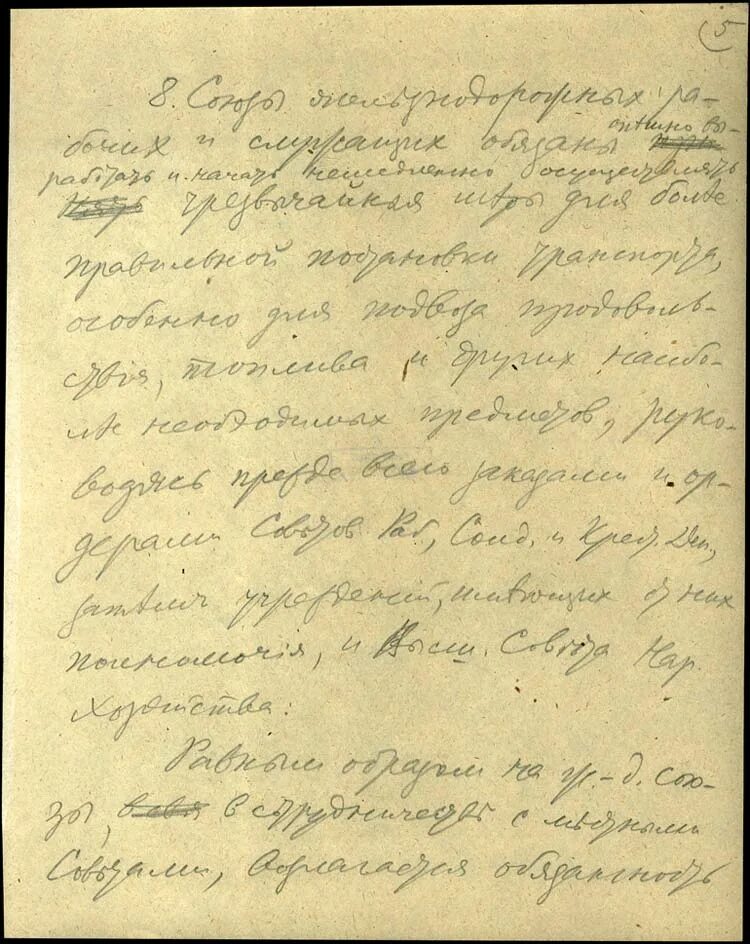 5
8. Союзы железнодорожных ра-
бочих и служащих обязаны спешно вы-
работать и начать немедленно осуществлять
чрезвычайныя меры для более
правильной постановки транспорта,
особенно для подвоза продоволь-
ствия, топлива и других наибо-
лѣе необходимых предметов, руко-
водясь прежде всего заказами и ор-
дерами Совѣтов Раб., Солд. и Крест. Деп.,
затѣм учреждений, имѣющих от них
полномочія, и Высш. Совѣта Нар.
Хозяйства.
Равным образом на ж.-д. сою-
зы, в сотрудничествѣ с мѣстными
Совѣтами, возлагается обязанность